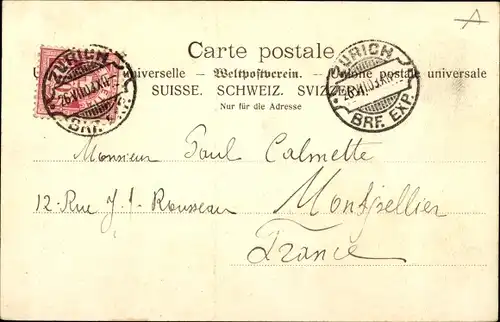 Carte postale
Union postale universelle — Weltpostverein. — Unione postale universale
SUISSE. SCHWEIZ. SVIZZERA.
Nur für die Adresse
ZÜRICH
BRF. EXP.
ZÜRICH
BRF. EXP.
Monsieur Paul Calmette
12 - Rue J. J. Rousseau
Montpellier
France